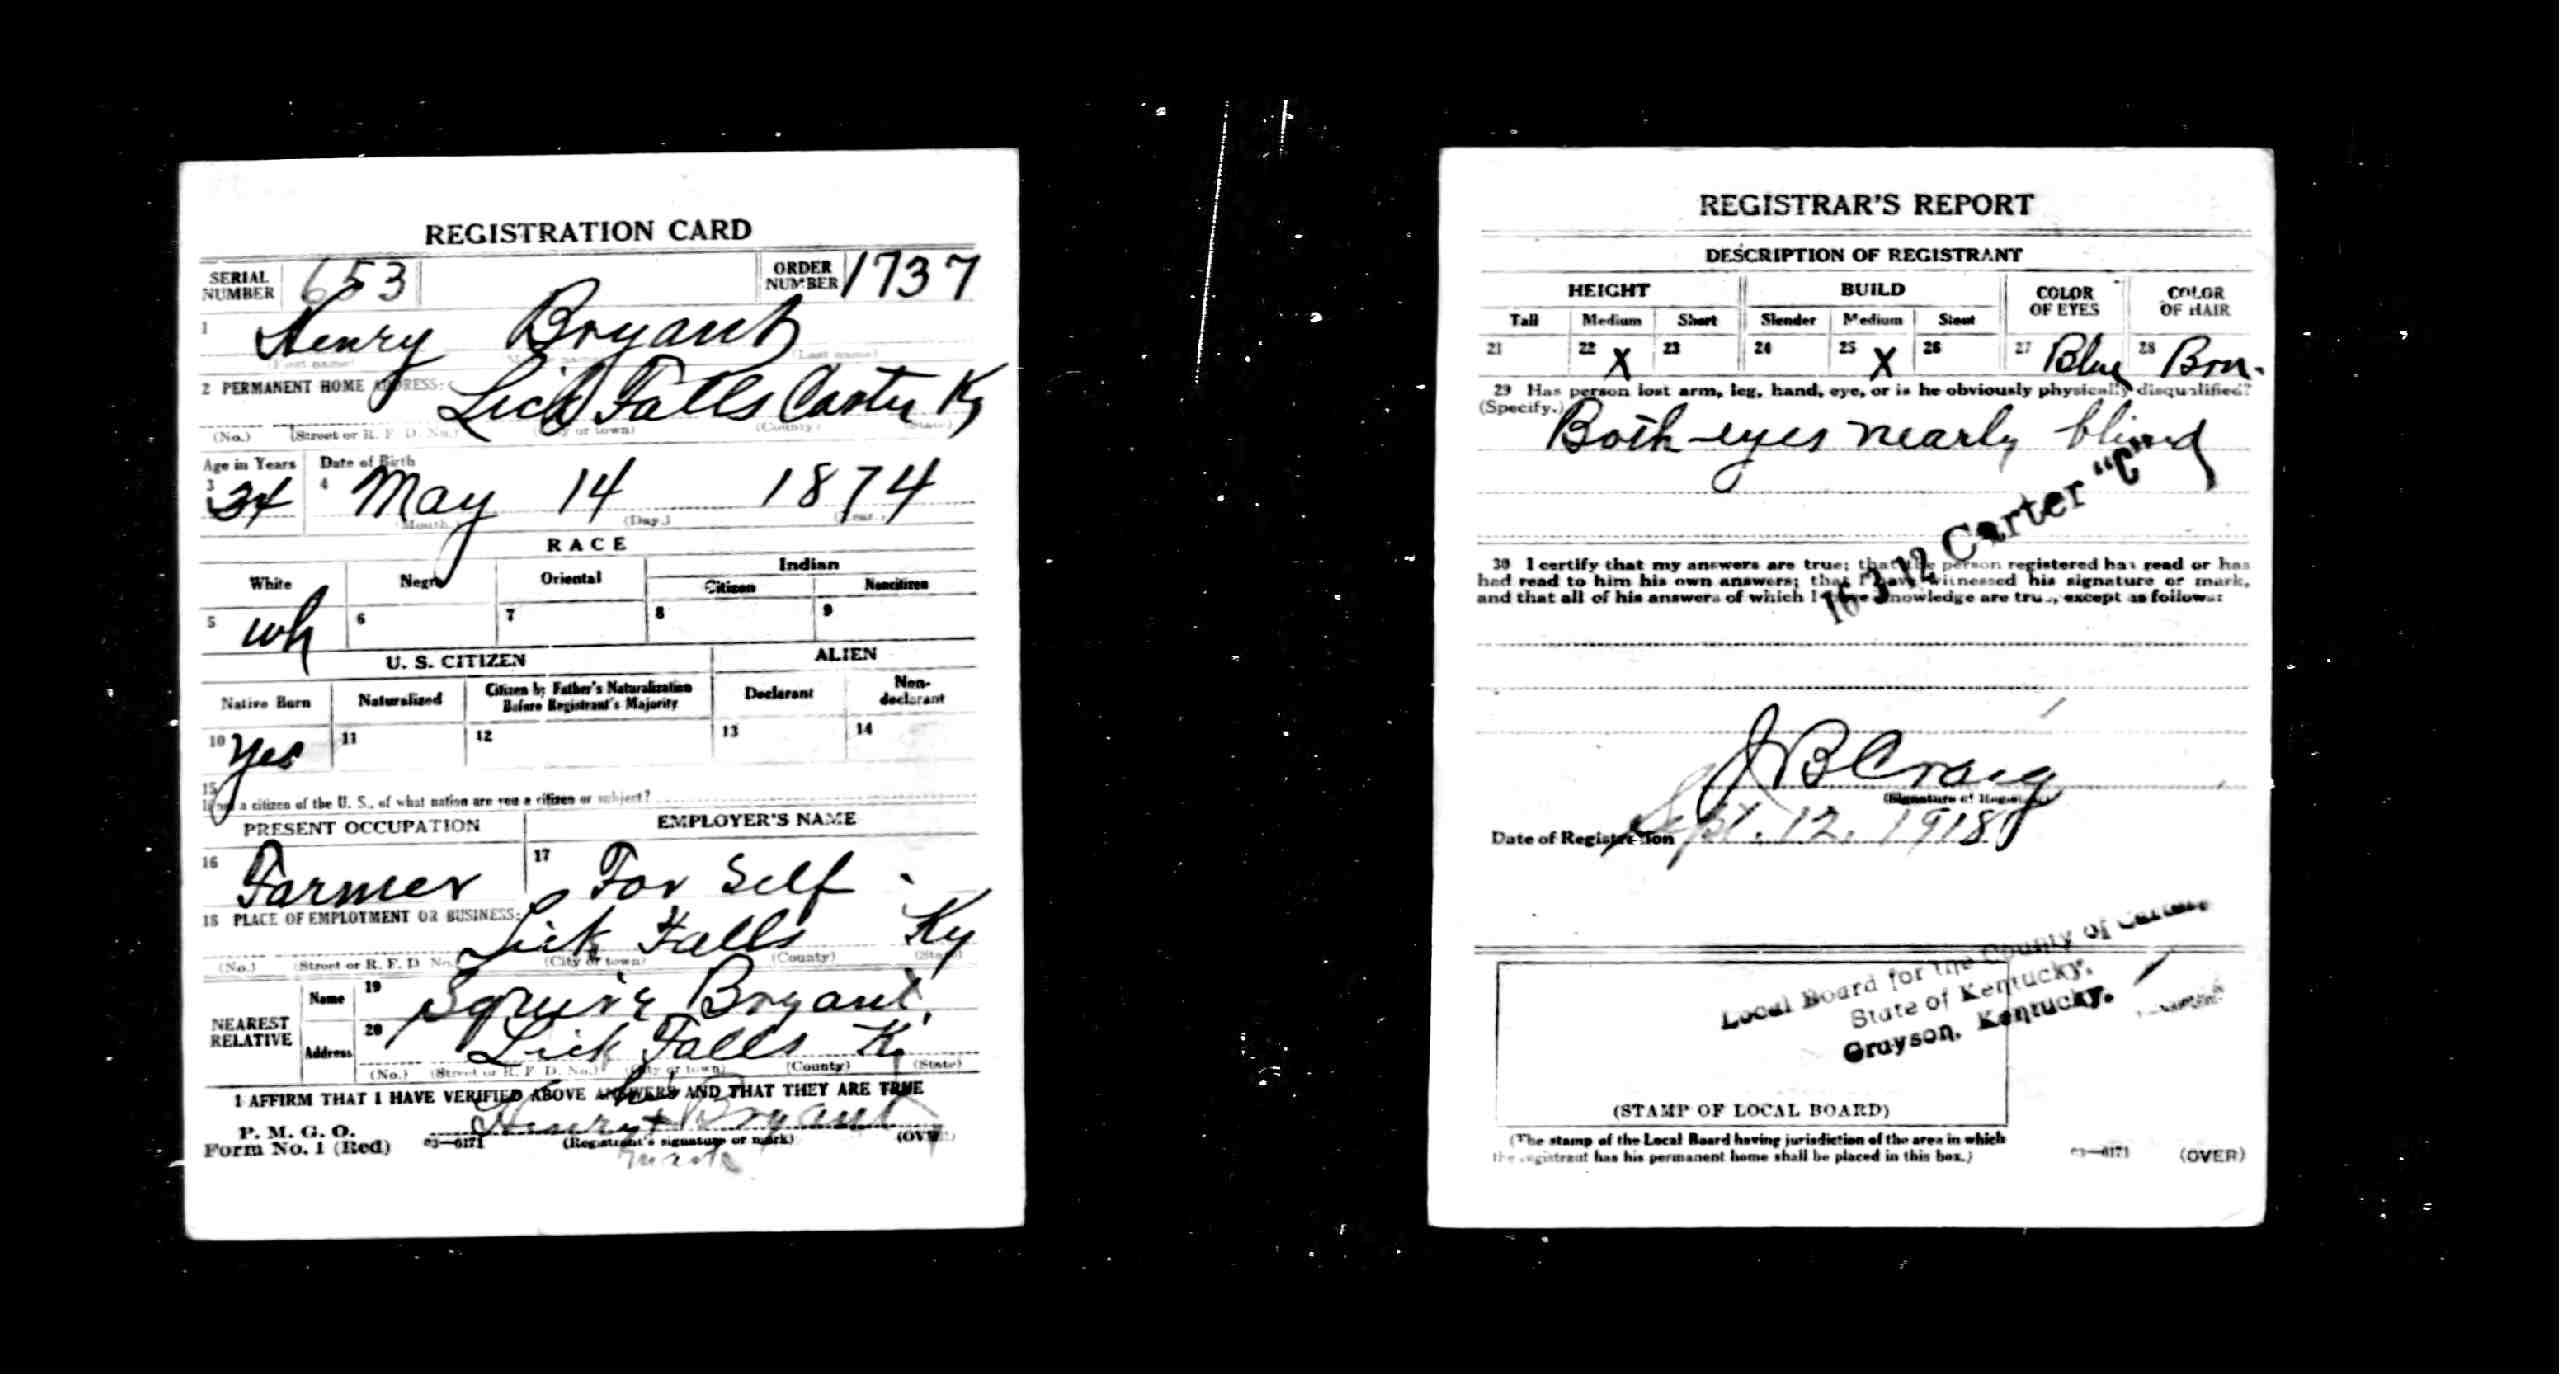 REGISTRATION CARD
SERIAL NUMBER 653 ORDER NUMBER 1737
1 Henry Bryant
(First name) (Last name)
2 PERMANENT HOME ADDRESS:
Lick Falls Carter Ky
(No.) (Street or R. F. D. No.) (City or town) (County) (State)
Age in Years Date of Birth
3 34 4 May 14 1874
(Month.) (Day.) (Year.)
RACE
White Negro Oriental Indian
Citizen Noncitizen
5 wh 6 7 8 9
U. S. CITIZEN ALIEN
Native Born Naturalized Citizen by Father's Naturalization Before Registrant's Majority Declarant Non-declarant
10 Yes 11 12 13 14
15
If not a citizen of the U. S., of what nation are you a citizen or subject?
PRESENT OCCUPATION EMPLOYER'S NAME
16 Farmer 17 For Self
18 PLACE OF EMPLOYMENT OR BUSINESS:
Lick Falls Ky
(No.) (Street or R. F. D. No.) (City or town) (County) (State)
NEAREST RELATIVE
Name 19 Squire Bryant
Address 20 Lick Falls K
(No.) (Street or R. F. D. No.) (City or town) (County) (State)
I AFFIRM THAT I HAVE VERIFIED ABOVE ANSWERS AND THAT THEY ARE TRUE
P. M. G. O.
Form No. 1 (Red) 03—6171 Henry his x Bryant
(Registrant's signature or mark) (OVER)
mark
REGISTRAR'S REPORT
DESCRIPTION OF REGISTRANT
HEIGHT BUILD COLOR OF EYES COLOR OF HAIR
Tall Medium Short Slender Medium Stout
21 22 X 23 24 25 X 26 27 Blue 28 Brn.
29 Has person lost arm, leg, hand, eye, or is he obviously physically disqualified?
(Specify.)
Both eyes nearly blind
16 3 12 Carter "C"
30 I certify that my answers are true; that the person registered has read or has
had read to him his own answers; that I have witnessed his signature or mark,
and that all of his answers of which I have knowledge are true, except as follows:
J B Craig
(Signature of Registrar)
Date of Registration Sept. 12, 1918
Local Board for the County of Carter,
State of Kentucky.
Grayson, Kentucky.
(STAMP OF LOCAL BOARD)
(The stamp of the Local Board having jurisdiction of the area in which
the registrant has his permanent home shall be placed in this box.)
03—6171 (OVER)